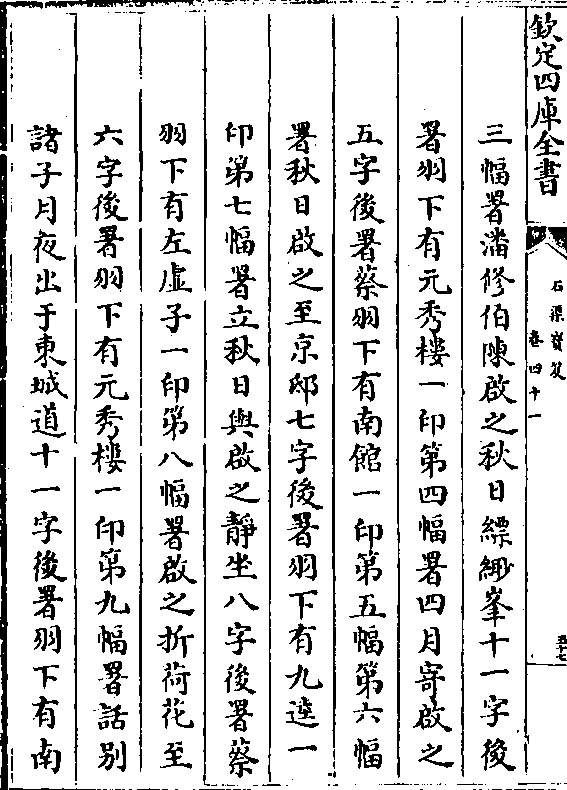 欽定四庫全書
石渠寳笈
卷四十一
五十七
三幅署潘修伯陳啟之秋日縹緲峯十一字後
署羽下有元秀樓一印第四幅署四月寄啟之
五字後署蔡羽下有南館一印第五幅第六幅
署秋日啟之至京邸七字後署羽下有九逵一
印第七幅署立秋日與啟之靜坐八字後署蔡
羽下有左虛子一印第八幅署啟之折荷花至
六字後署羽下有元秀樓一印第九幅署話別
諸子月夜出于東城道十一字後署羽下有南